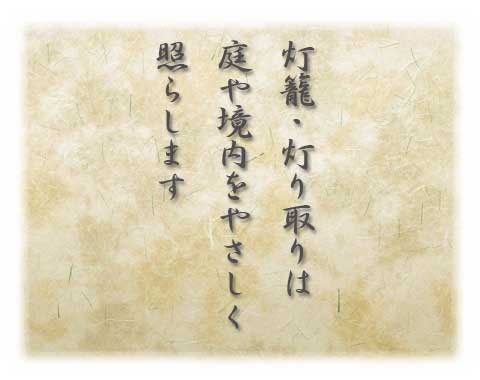 灯籠・灯り取りは
庭や境内をやさしく
照らします